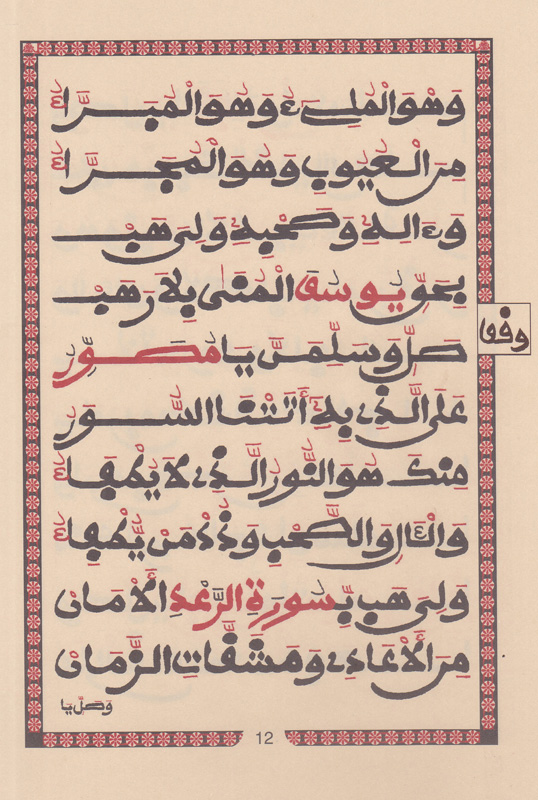 وَهْوَ الْمَلِيءُ وَهُوَ الْمُبَرَّا
مِنَ الْعُيُوبِ وَهُوَ الْمُجَرَّا
وَءَالِهِ وَصَحْبِهِ وَلِي هَبْ
بِحَقِّ يُوسُفَ الْمُنَى بِلَا رَهَبْ
صَلِّ وَسَلِّمَنَّ يَا مُصَوِّرُ
عَلَى الَّذِي بِهِ أَتَتْنَا السُّوَرُ
مِنْكَ هُوَ النُّورُ الَّذِي لَا يُطْفَا
وَالْئَالِ وَالصَّحْبِ وَذُدْ مَن يُّطْفِا
وَلِي هَبْ بِسُورَةِ الرَّعْدِ الْأَمَانْ
مِنَ الْأَعَادِي وَمَشَقَّاتِ الزَّمَانْ
وَصَلِّ يَا
12